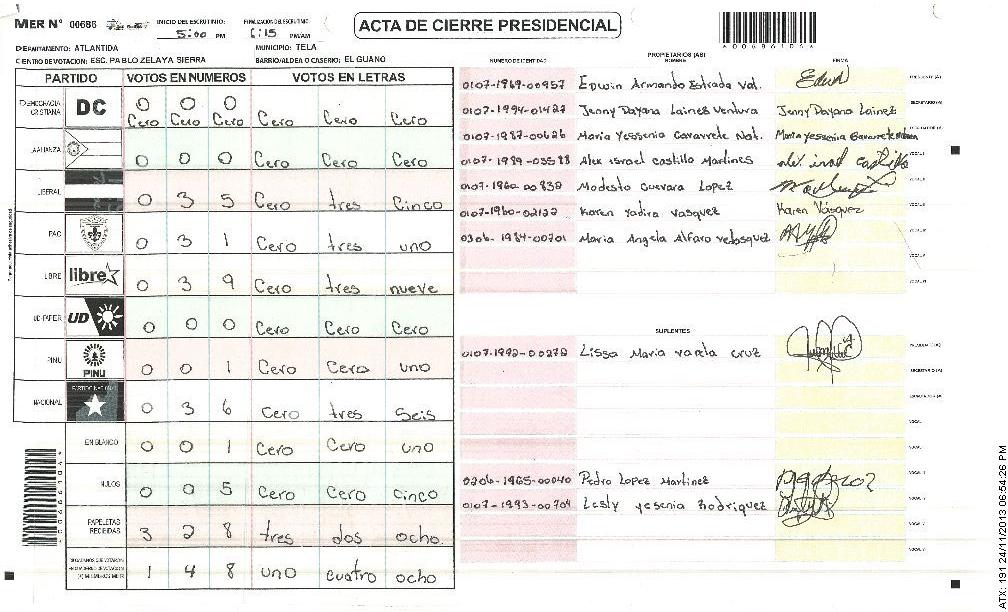 MER N° 00686
INICIO DEL ESCRUTINIO: 5:00 PM
FINALIZACION DEL ESCRUTINIO: 6:15 PM/AM
ACTA DE CIERRE PRESIDENCIAL
DEPARTAMENTO: ATLANTIDA
MUNICIPIO: TELA
CENTRO DE VOTACION: ESC. PABLO ZELAYA SIERRA
BARRIO/ALDEA O CASERIO: EL GUANO
PARTIDO VOTOS EN NUMEROS VOTOS EN LETRAS
DEMOCRACIA CRISTIANA DC 0 0 0 Cero Cero Cero Cero Cero Cero
ALIANZA 0 0 0 Cero Cero Cero
LIBERAL 0 3 5 Cero tres Cinco
PAC 0 3 1 Cero tres uno
LIBRE libre 0 3 9 Cero tres nueve
UD-FAPER UD 0 0 0 Cero Cero Cero
PINU PINU 0 0 1 Cero Cero uno
NACIONAL PARTIDO NACIONAL 0 3 6 Cero tres Seis
EN BLANCO 0 0 1 Cero Cero uno
NULOS 0 0 5 Cero Cero cinco
PAPELETAS RECIBIDAS 3 2 8 tres dos ocho
CIUDADANOS QUE VOTARON EN CUADERNO DE VOTACION (+) MIEMBROS MER 1 4 8 uno cuatro ocho
PROPIETARIOS (AS)
NUMERO DE IDENTIDAD NOMBRE FIRMA
0107-1969-00957 Edwin Armando Estrada Val. PRESIDENTE (A)
0107-1994-01427 Jenny Dayana Laines Ventura Jenny Dayana Lainez SECRETARIO (A)
0107-1987-00626 Maria Yessenia Gavarrete Nat. Maria yessenia Gavarrete
0107-1989-03588 Alex israel castillo Martines VOCAL I
0107-1960-00830 Modesto Guevara Lopez VOCAL II
0107-1980-02122 Karen Yadira Vasquez Karen Vásquez VOCAL III
0306-1984-00701 Maria Angela Alfaro velasquez VOCAL IV
VOCAL V
VOCAL VI
SUPLENTES
0107-1992-00272 Lissa Maria varela cruz PRESIDENTE (A)
SECRETARIO (A)
ESCRUTADOR (A)
VOCAL I
0206-1965-00040 Pedro Lopez Martinez VOCAL II
0107-1993-00704 Lesly yesenia Rodriquez VOCAL III
VOCAL V
VOCAL VI
ATX: 191 24/11/2013 06:54:26 PM